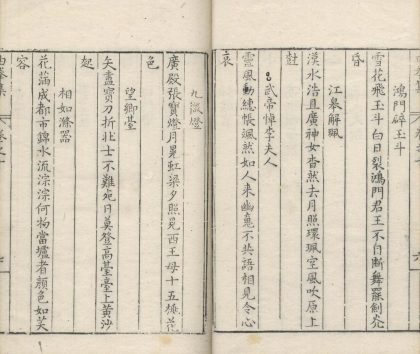 鴻門碎玉斗
雪花飛玉斗白日裂鴻門君王不自斷舞罷劍光
昏
江皋解珮
漢水浩且廣神女杳然去月照環珮空風吹原上
武帝悼李夫人
靈風動繐帳颯然如人来幽魂不共語相見令心
哀
九微燈
廣殿張寶燈月晃虹梁夕照見西王母十五桃花
色
望鄉臺
矢盡寶刀折壯士不難死日莫登高臺臺上黃沙
起
相如滌器
花滿成都市錦水流淙淙何物當壚者顏色如芙
容